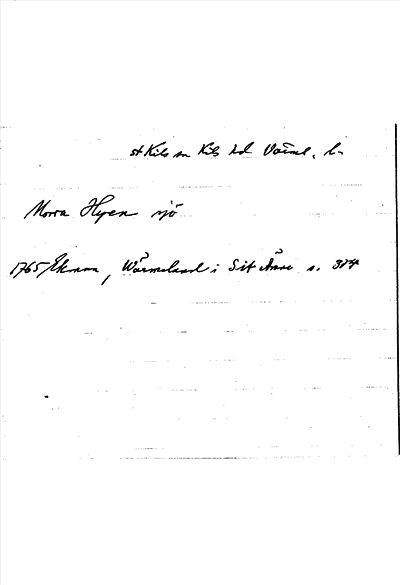 st Kils sn Kils hd Värml. l.
Norra Hyen sjö
1765 Ekman, Wärmeland i Sit Ämne s. 324